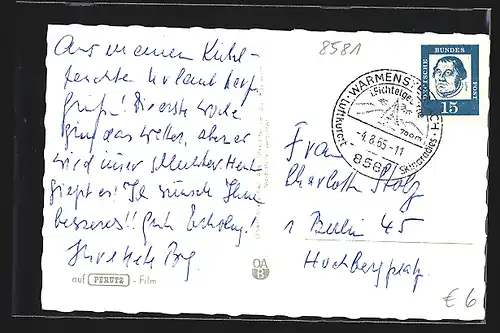 8581
Aus meinem Kühl-
feuchten Urlaub herzl.
Grüße! Die erste Woche
ging das Wetter, aber es
wird immer schlechter. Heute
gießt es! Ich wünsche Ihnen
besseres!! Gute Erholung.
Ihre
auf PERUTZ - Film
OA
B
WARMENST
Luftkurort
-4.8.65-11
8581
DEUTSCHE BUNDES POST
15
Frau
Charlotte Stolz
1 Berlin 45
Hochbergplatz
€6